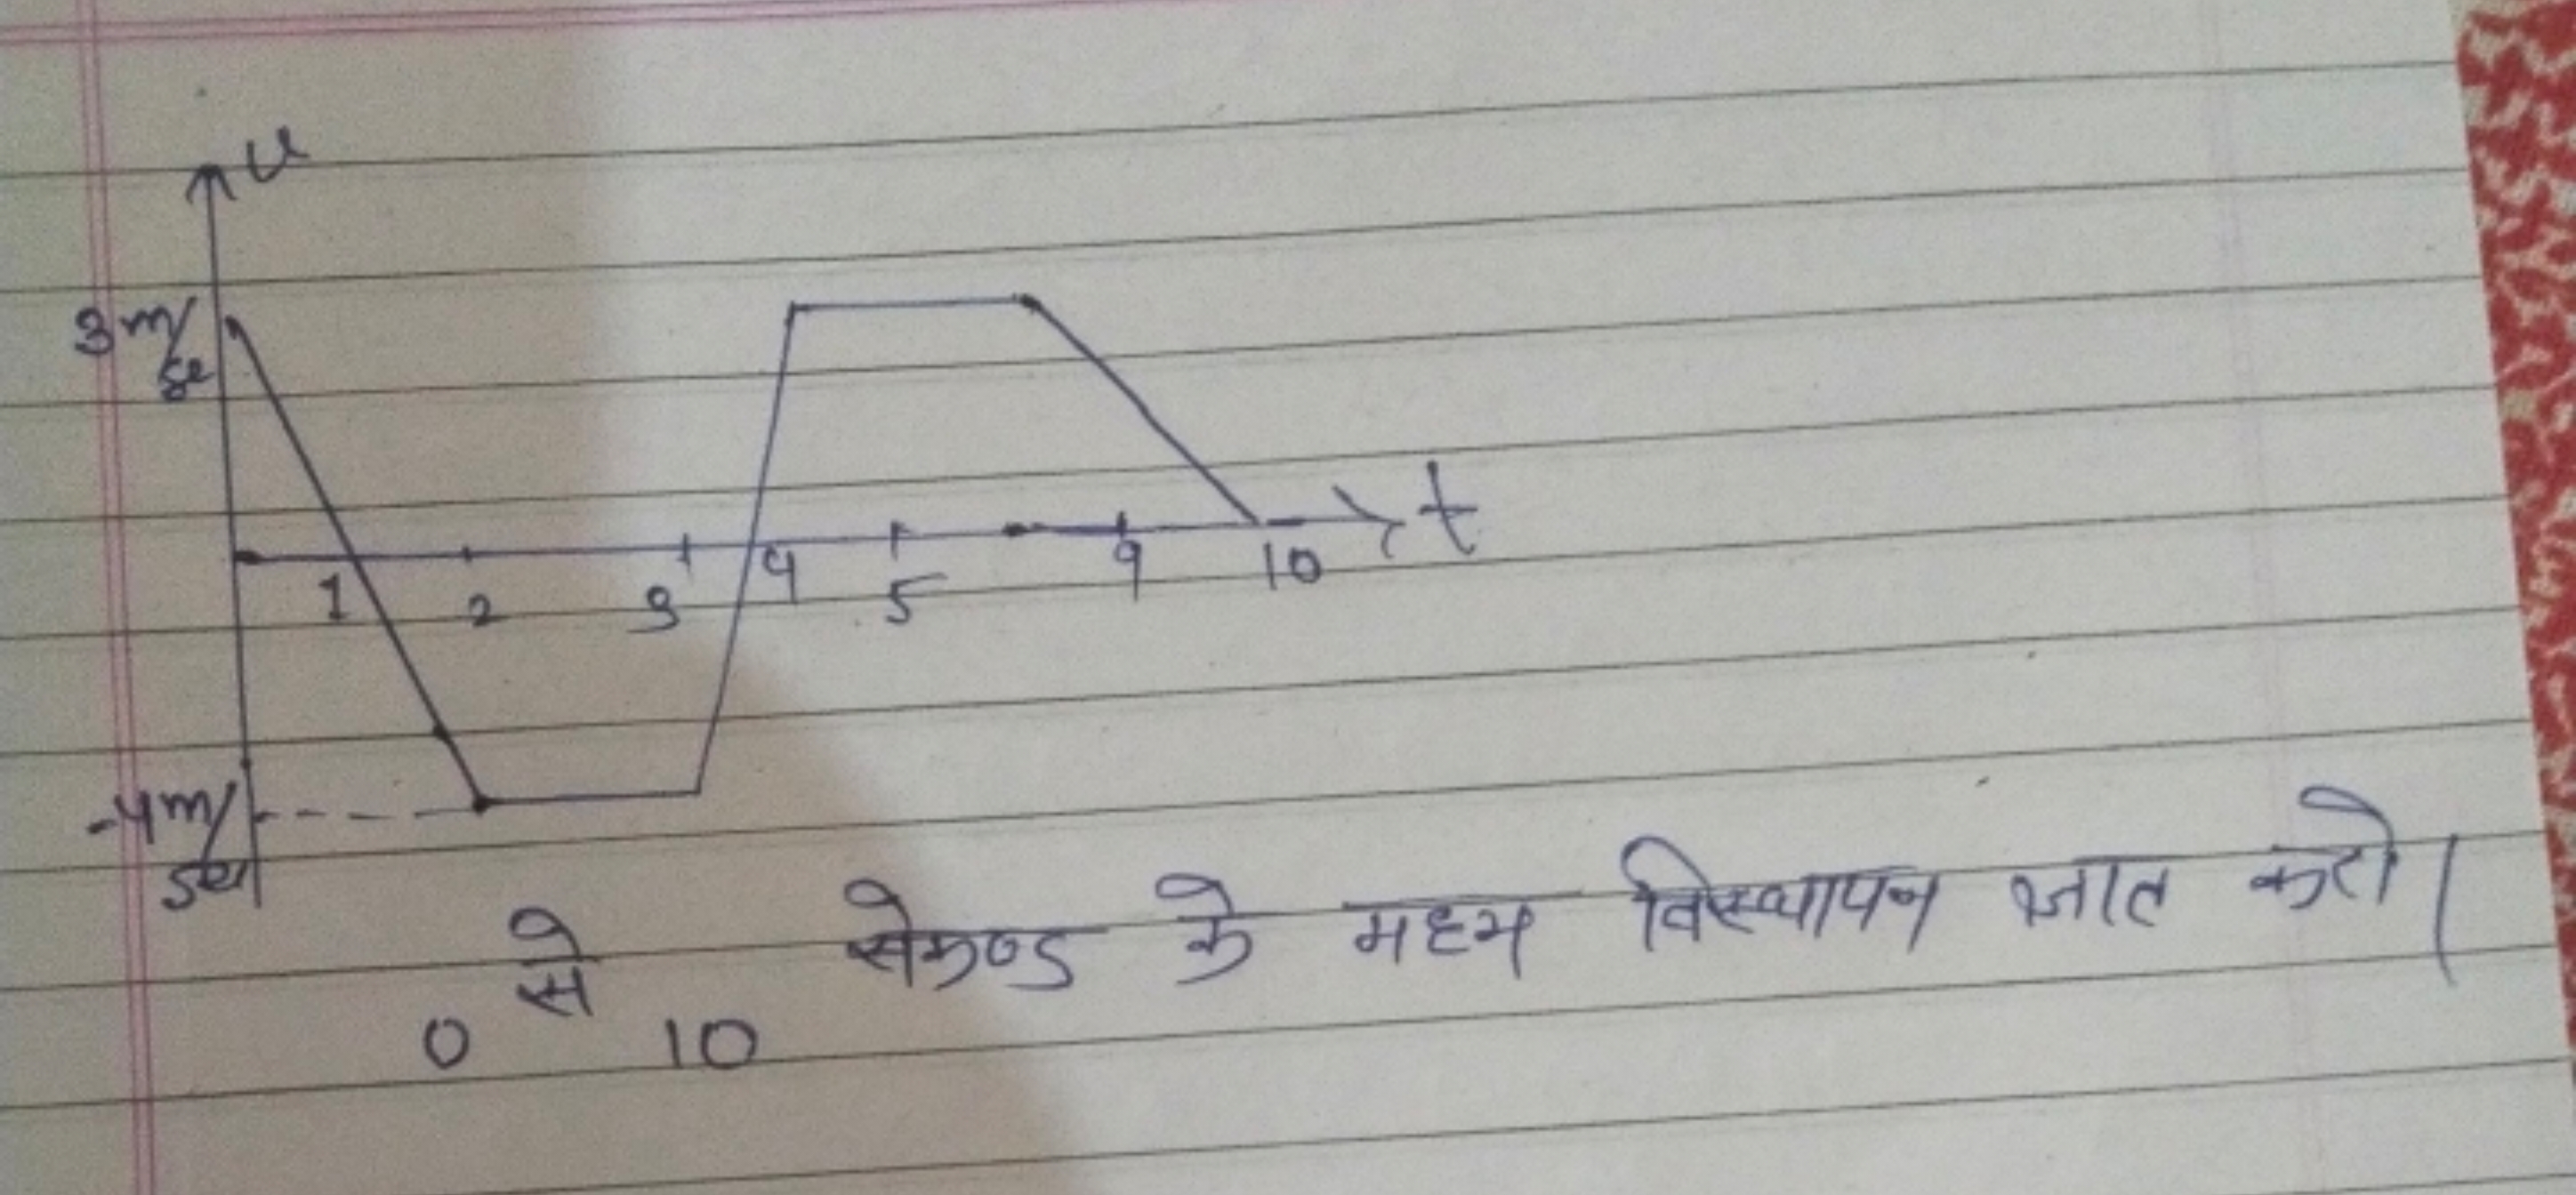 v
3 m/se
1 2 3 4 5 9 10 t
-4 m/sec
0 से 10 सेकण्ड के मध्य विस्थापन ज्ञात करो।